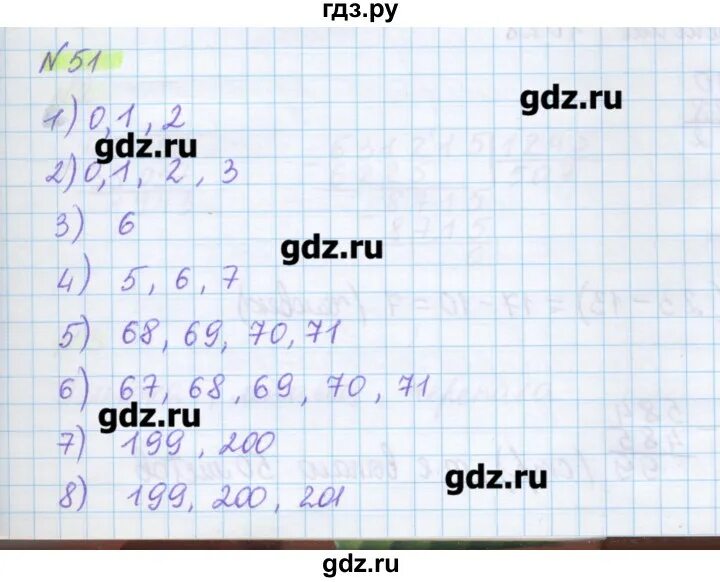 гдз.ру
№51
1) 0, 1, 2
gdz.ru
gdz.ru
2) 0, 1, 2, 3
3) 6
gdz.ru
4) 5, 6, 7
5) 68, 69, 70, 71
6) 67, 68, 69, 70, 71
gdz.ru
7) 199, 200
gdz.ru
8) 199, 200, 201
gdz.ru